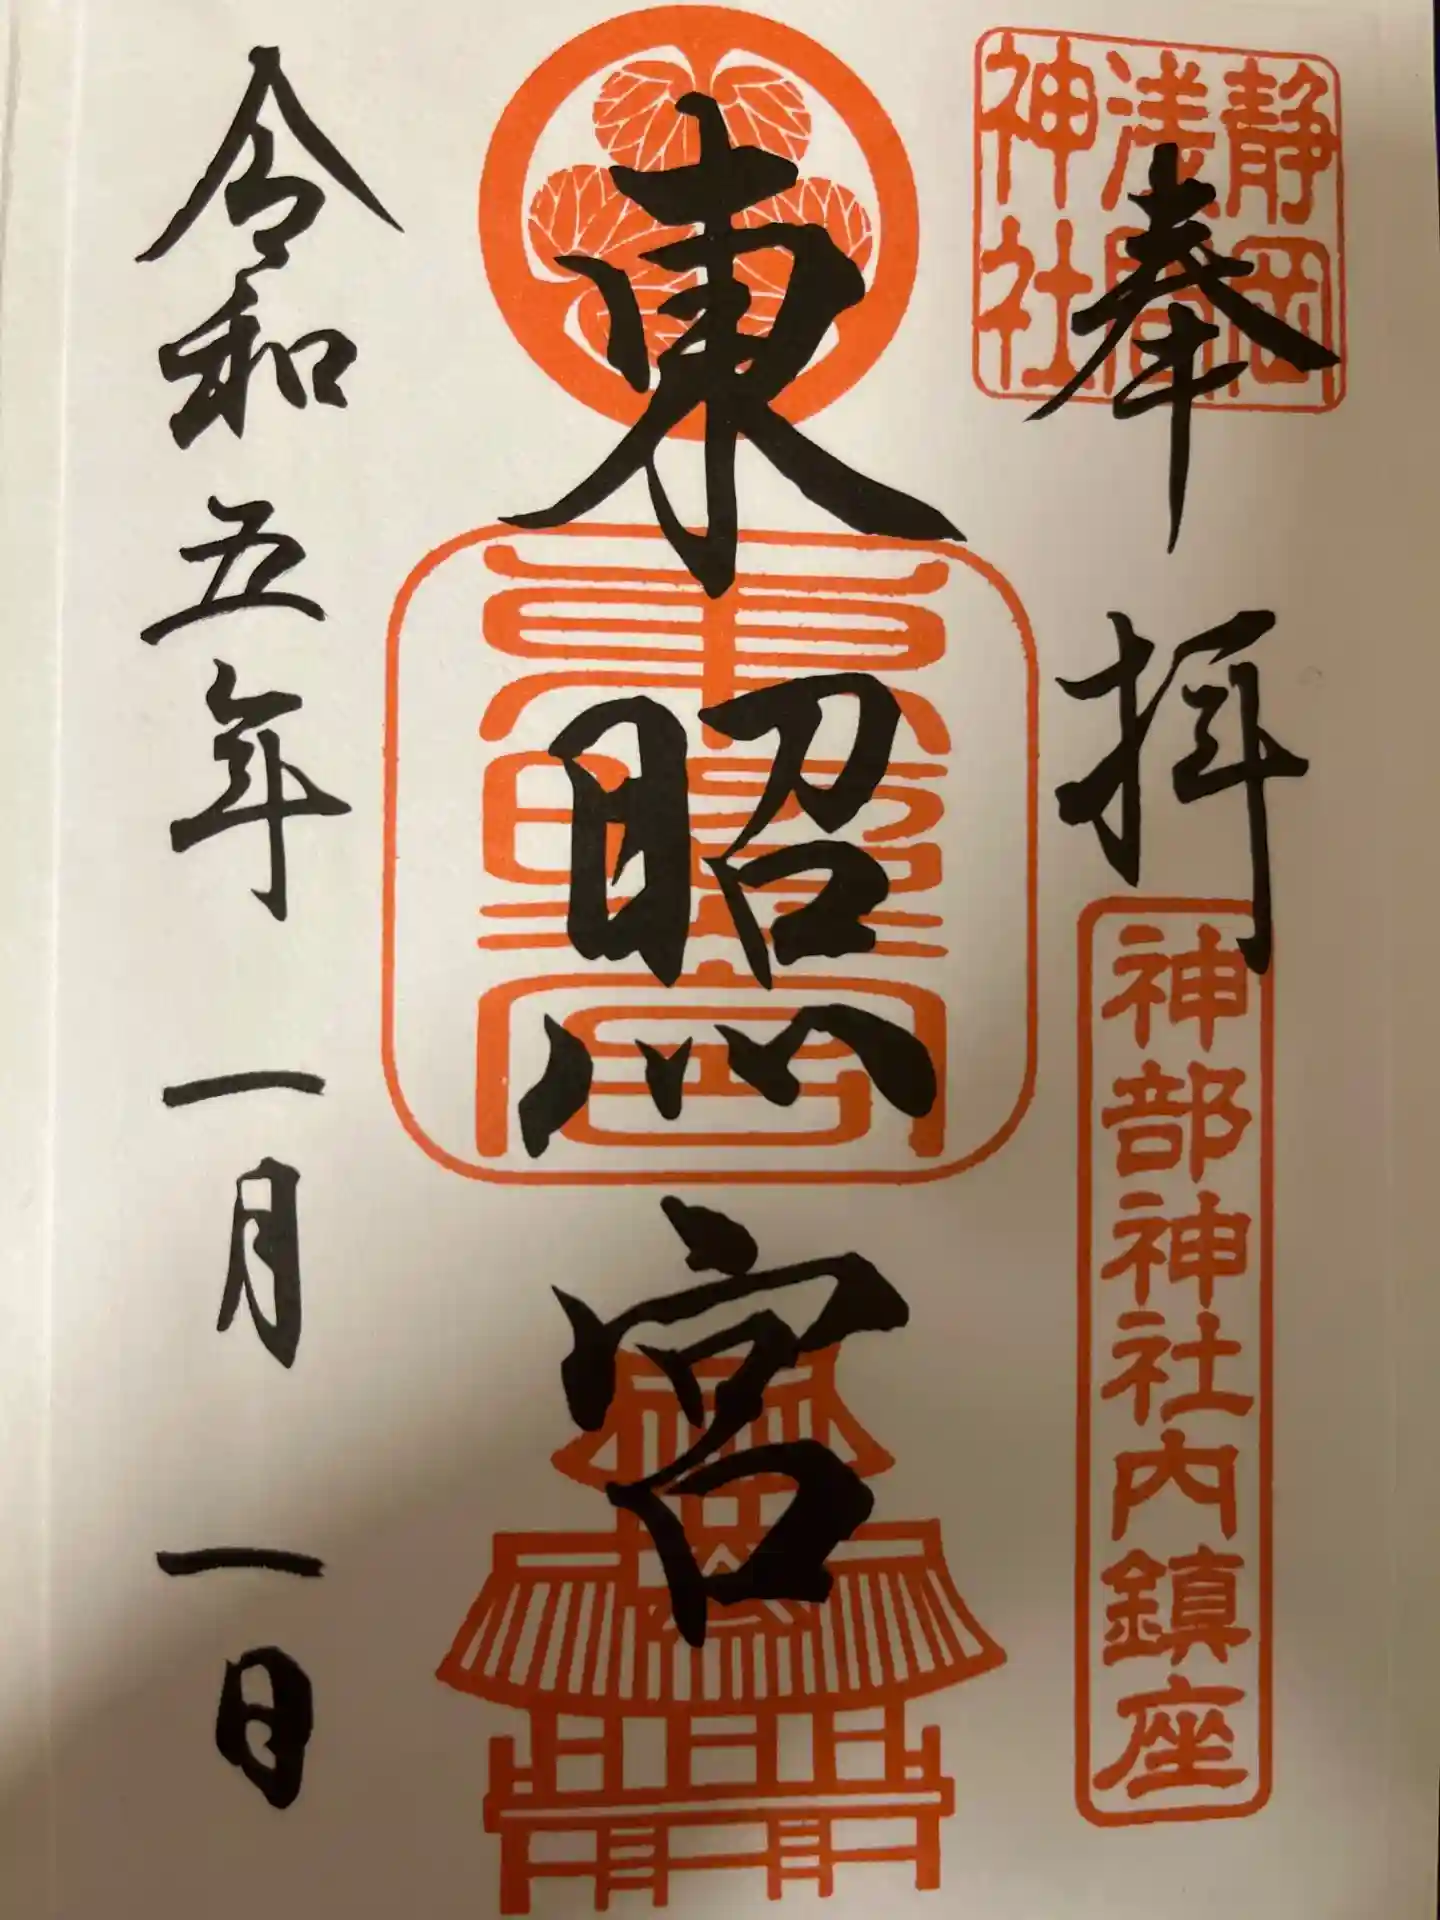 奉拝
静岡
浅間
神社
神部神社内鎮座
東照宮
東照宮
令和五年一月一日